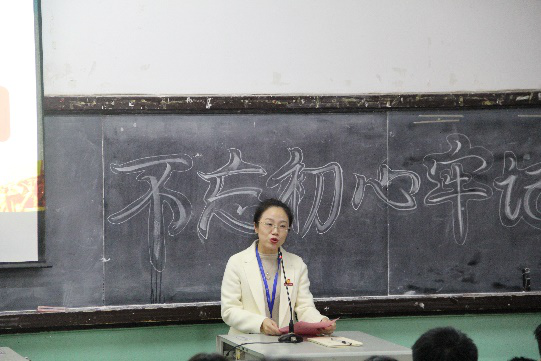 不忘初心牢记